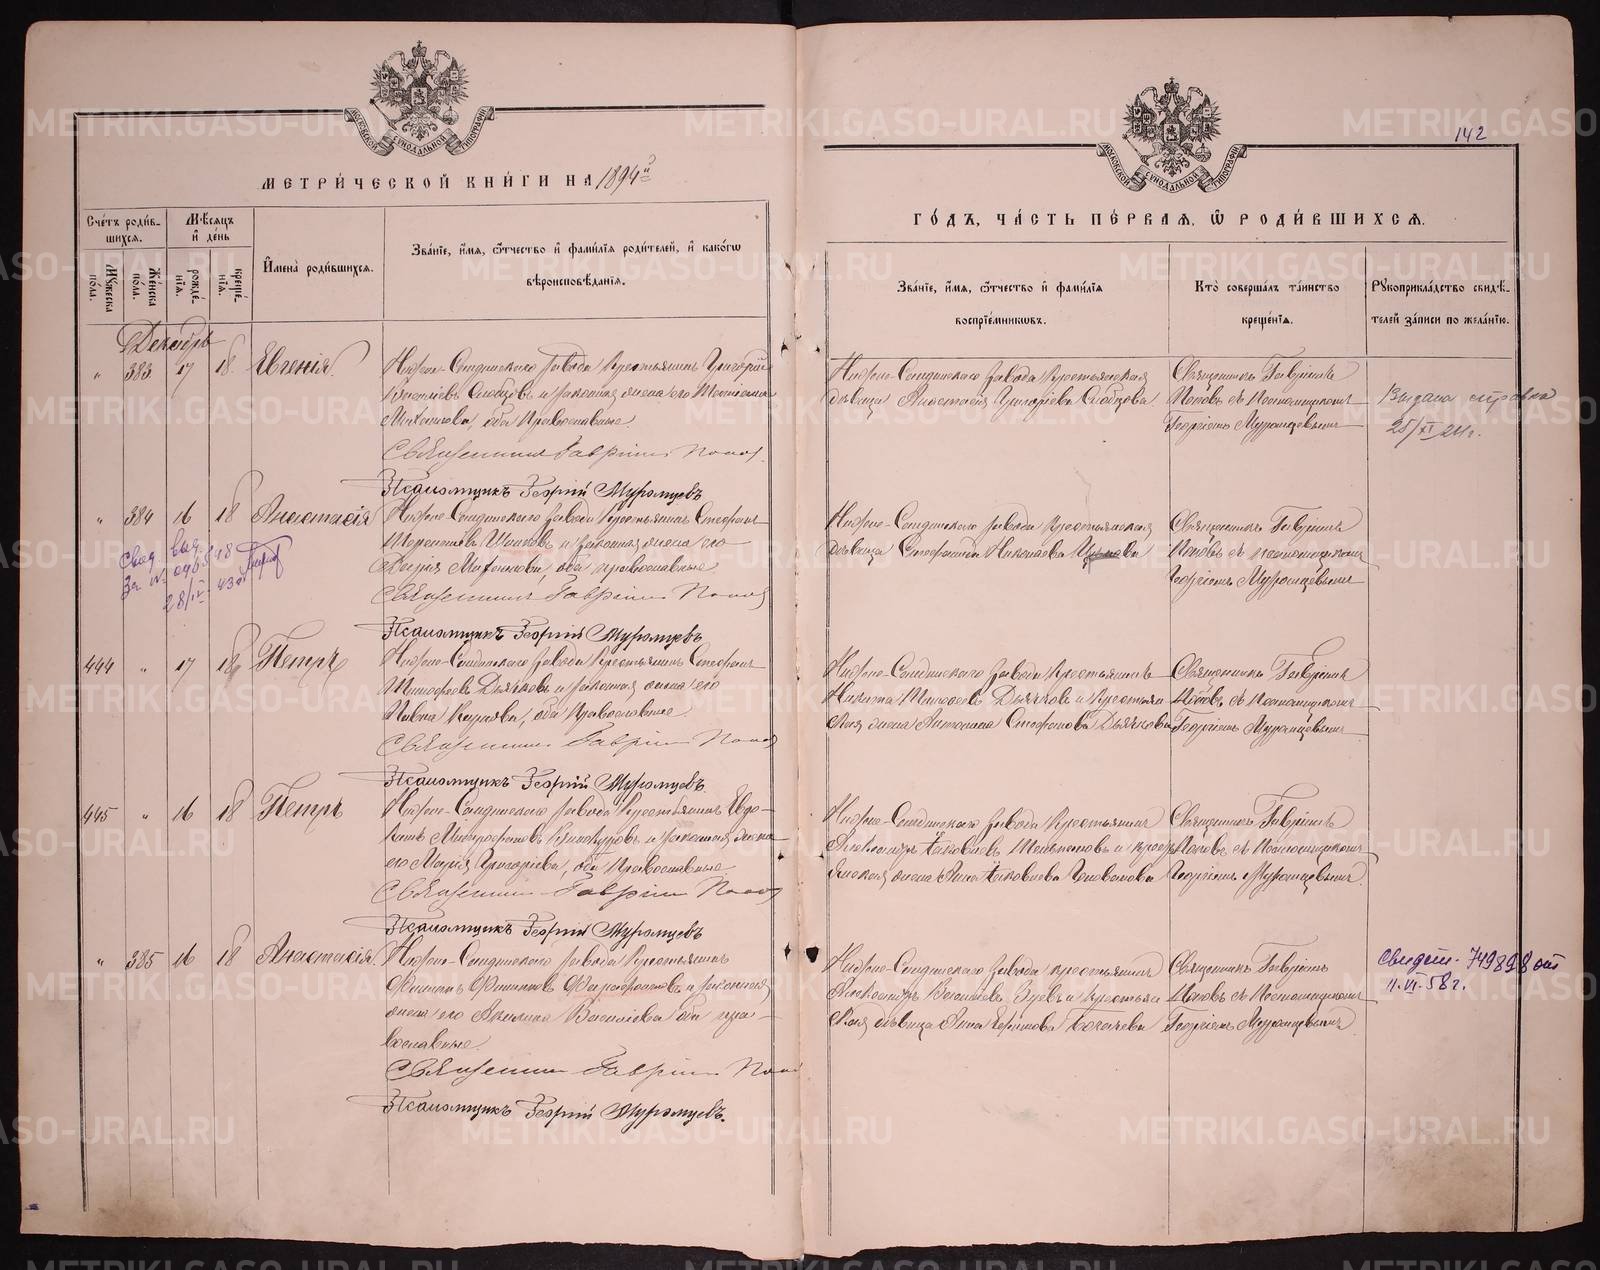 МОСКОВСКОЙ СѴНОДАЛЬНОЙ ТИПОГРАФІИ
МЕТРИ́ЧЕСКОЙ КНИ́ГИ НА 1894й
Сче́тъ роди́в-
шихся.
М҃ѣсяцъ
и҆ де́нь
Мꙋ́жеска
по́ла.
Же́нска
по́ла.
рожде́-
нїя.
креще́-
нїя.
И҆мена̀ роди́вшихся.
Зва́нїе, и҆́мя, ѻ҆́тчество и҆ фами́лїя роди́телей, и҆ како́гѡ
вѣроисповѣ́данїя.
Декабрь
" 383 17 18 Евгенія.
Нижне-Салдинскаго завода крестьянинъ Григорій
Васильевъ и законная жена его
оба православные
Священникъ Гавріилъ Попов
Псаломщикъ Георгій Муромцевъ
" 384 16 18 Анастасія
Нижне-Салдинскаго завода крестьянинъ Стефанъ
Терентьевъ и законная жена его
оба православные
Священникъ Гавріилъ Попов
Псаломщикъ Георгій Муромцевъ
28/IV
444 " 17 18 Петръ
Нижне-Салдинскаго завода крестьянинъ Стефанъ
Тимофеевъ Дьячковъ и законная жена его
оба православные
Священникъ Гавріилъ Попов
Псаломщикъ Георгій Муромцевъ.
445 " 16 18 Петръ
Нижне-Салдинскаго завода крестьянинъ Евдо-
кимъ Митрофановъ и законная жена
его Марія Григорьева, оба православные
Священникъ Гавріилъ Попов
Псаломщикъ Георгій Муромцевъ
" 385 16 18 Анастасія.
Нижне-Салдинскаго завода крестьянинъ
Филиппъ Филипповъ и законная
жена его Акилина Васильева оба пра-
вославные
Священникъ Гавріилъ Поп
Псаломщикъ Георгій Муромцевъ.
142
МОСКОВСКОЙ СѴНОДАЛЬНОЙ ТИПОГРАФІИ
ГО́ДЪ, ЧА́СТЬ ПЕ́РВАЯ, Ѡ҆ РОДИ́ВШИХСЯ.
Зва́нїе, и҆́мя, ѻ҆́тчество и҆ фами́лїя
воспрїе́мникѡвъ.
Кто̀ соверша́лъ та́инство
креще́нїя.
Рꙋкоприкла́дство свидѣ́-
телей за́писи по жела́нїю.
Нижне-Салдинскаго завода крестьянская
дѣвица Анастасія Григорьева Слобцова
Священникъ Гавріилъ
Поповъ съ Псаломщикомъ
Георгіемъ Муромцевымъ
Выдана справка
25/XI 24г.
Нижне-Салдинскаго завода крестьянская
дѣвица Стефанида Николаева
Священникъ Гавріилъ
Поповъ съ псаломщикомъ
Георгіемъ Муромцевымъ
Нижне-Салдинскаго завода крестьянинъ
Никита Тимофеевъ Дьячковъ и крестьян
ская жена Антонина Стефанова Дьячкова
Священникъ Гавріилъ
Поповъ съ Псаломщикомъ
Георгіемъ Муромцевымъ
Нижне-Салдинскаго завода крестьянинъ
Александръ Яковлевъ и крестьян
жена Анна Яковлева
Священникъ Гавріилъ
Поповъ съ Псаломщикомъ
Георгіемъ Муромцевымъ
Нижне-Салдинскаго завода крестьянинъ
Александръ Васильевъ Зуевъ и крестьян
ская дѣвица Анна Ефимова
Священникъ Гавріилъ
Поповъ съ Псаломщикомъ
Георгіемъ Муромцевымъ
Свидет. 749898 от
11.VI.58г.
METRIKI.GASO-URAL.RU